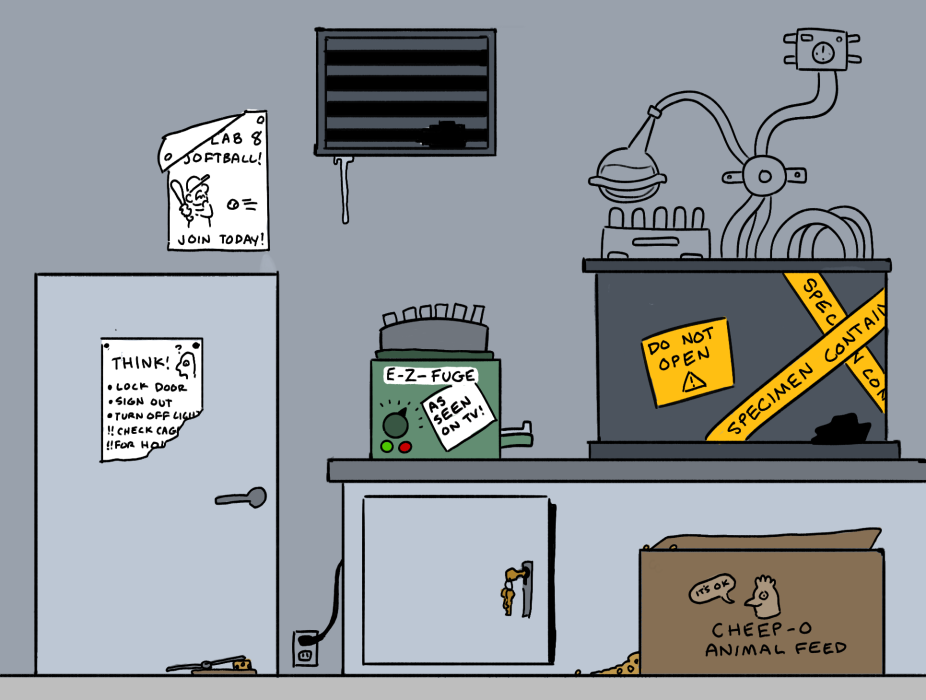 LAB 8
SOFTBALL!
JOIN TODAY!
THINK!
?
• LOCK DOOR
• SIGN OUT
• TURN OFF LIGHT
!! CHECK CAG
!! FOR HO
E-Z-FUGE
AS
SEEN
ON TV!
DO NOT
OPEN
!
SPEC
N CON
SPECIMEN CONTAIN
IT'S OK
CHEEP-O
ANIMAL FEED